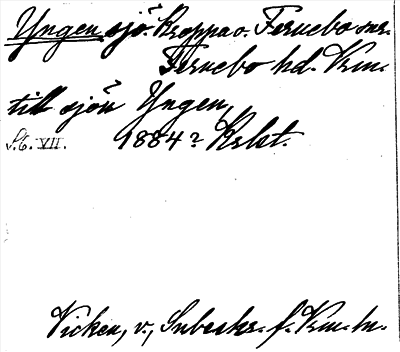 Yngen sjö. Kroppa o. Fernebo snr.
Fernebo hd. Vrm.
till sjön Yngen,
S. 6. VII. 1884? Rskt.
Vicken, v., Inbeskr. f. Vrm. ln.